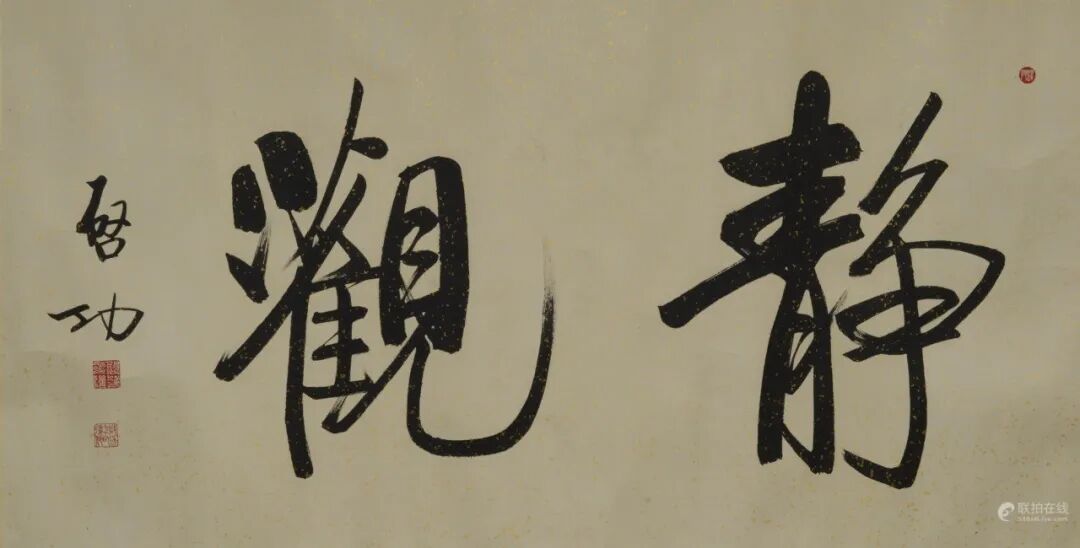 靜觀
啓功
联拍在线